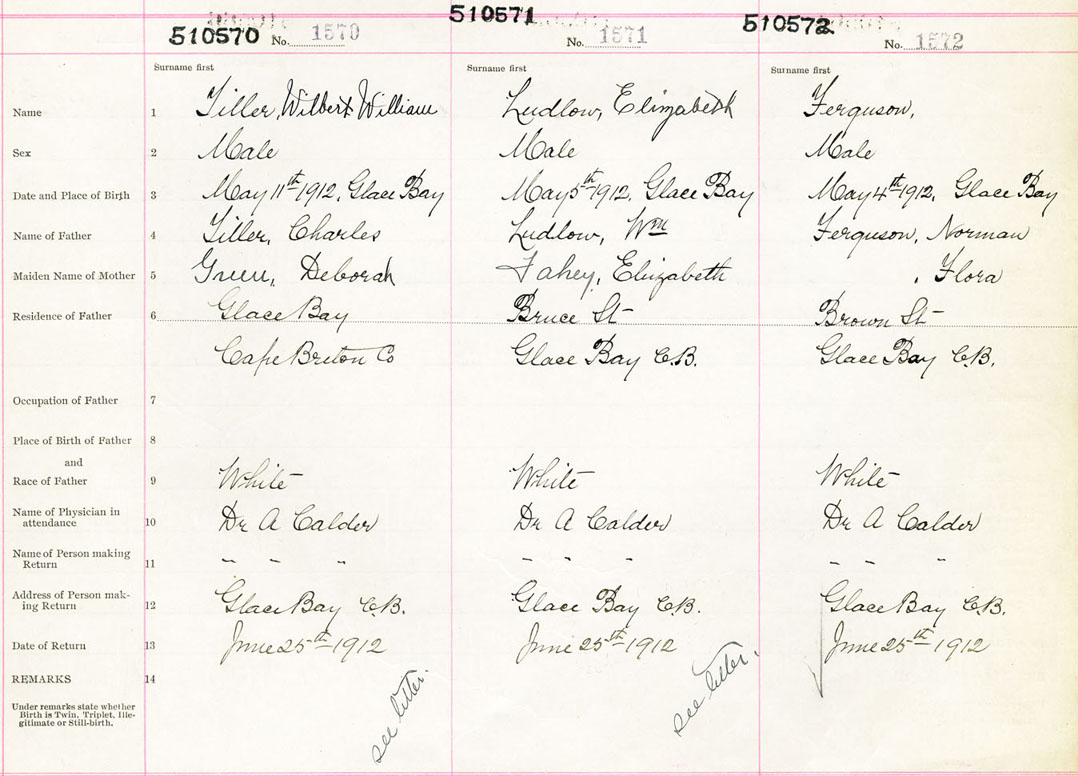 510570 No. 1570 510571 No. 1571 510572 No. 1572
Surname first Surname first Surname first
Name 1 Tiller, Wilbert William Ludlow, Elizabeth Ferguson,
Sex 2 Male Male Male
Date and Place of Birth 3 May 11th 1912, Glace Bay May 5th 1912, Glace Bay May 4th 1912, Glace Bay
Name of Father 4 Tiller, Charles Ludlow, Wm Ferguson, Norman
Maiden Name of Mother 5 Green, Deborah Fahey, Elizabeth , Flora
Residence of Father 6 Glace Bay Bruce St Brown St
Cape Breton Co Glace Bay C.B. Glace Bay C.B.
Occupation of Father 7
Place of Birth of Father 8
and
Race of Father 9 White White White
Name of Physician in
attendance 10 Dr A Calder Dr A Calder Dr A Calder
Name of Person making
Return 11 " " " " " " " " "
Address of Person mak-
ing Return 12 Glace Bay C.B. Glace Bay C.B. Glace Bay C.B.
Date of Return 13 June 25th 1912 June 25th 1912 June 25th 1912
REMARKS 14 see letter. see letter.
Under remarks state whether
Birth is Twin, Triplet, Ille-
gitimate or Still-birth.